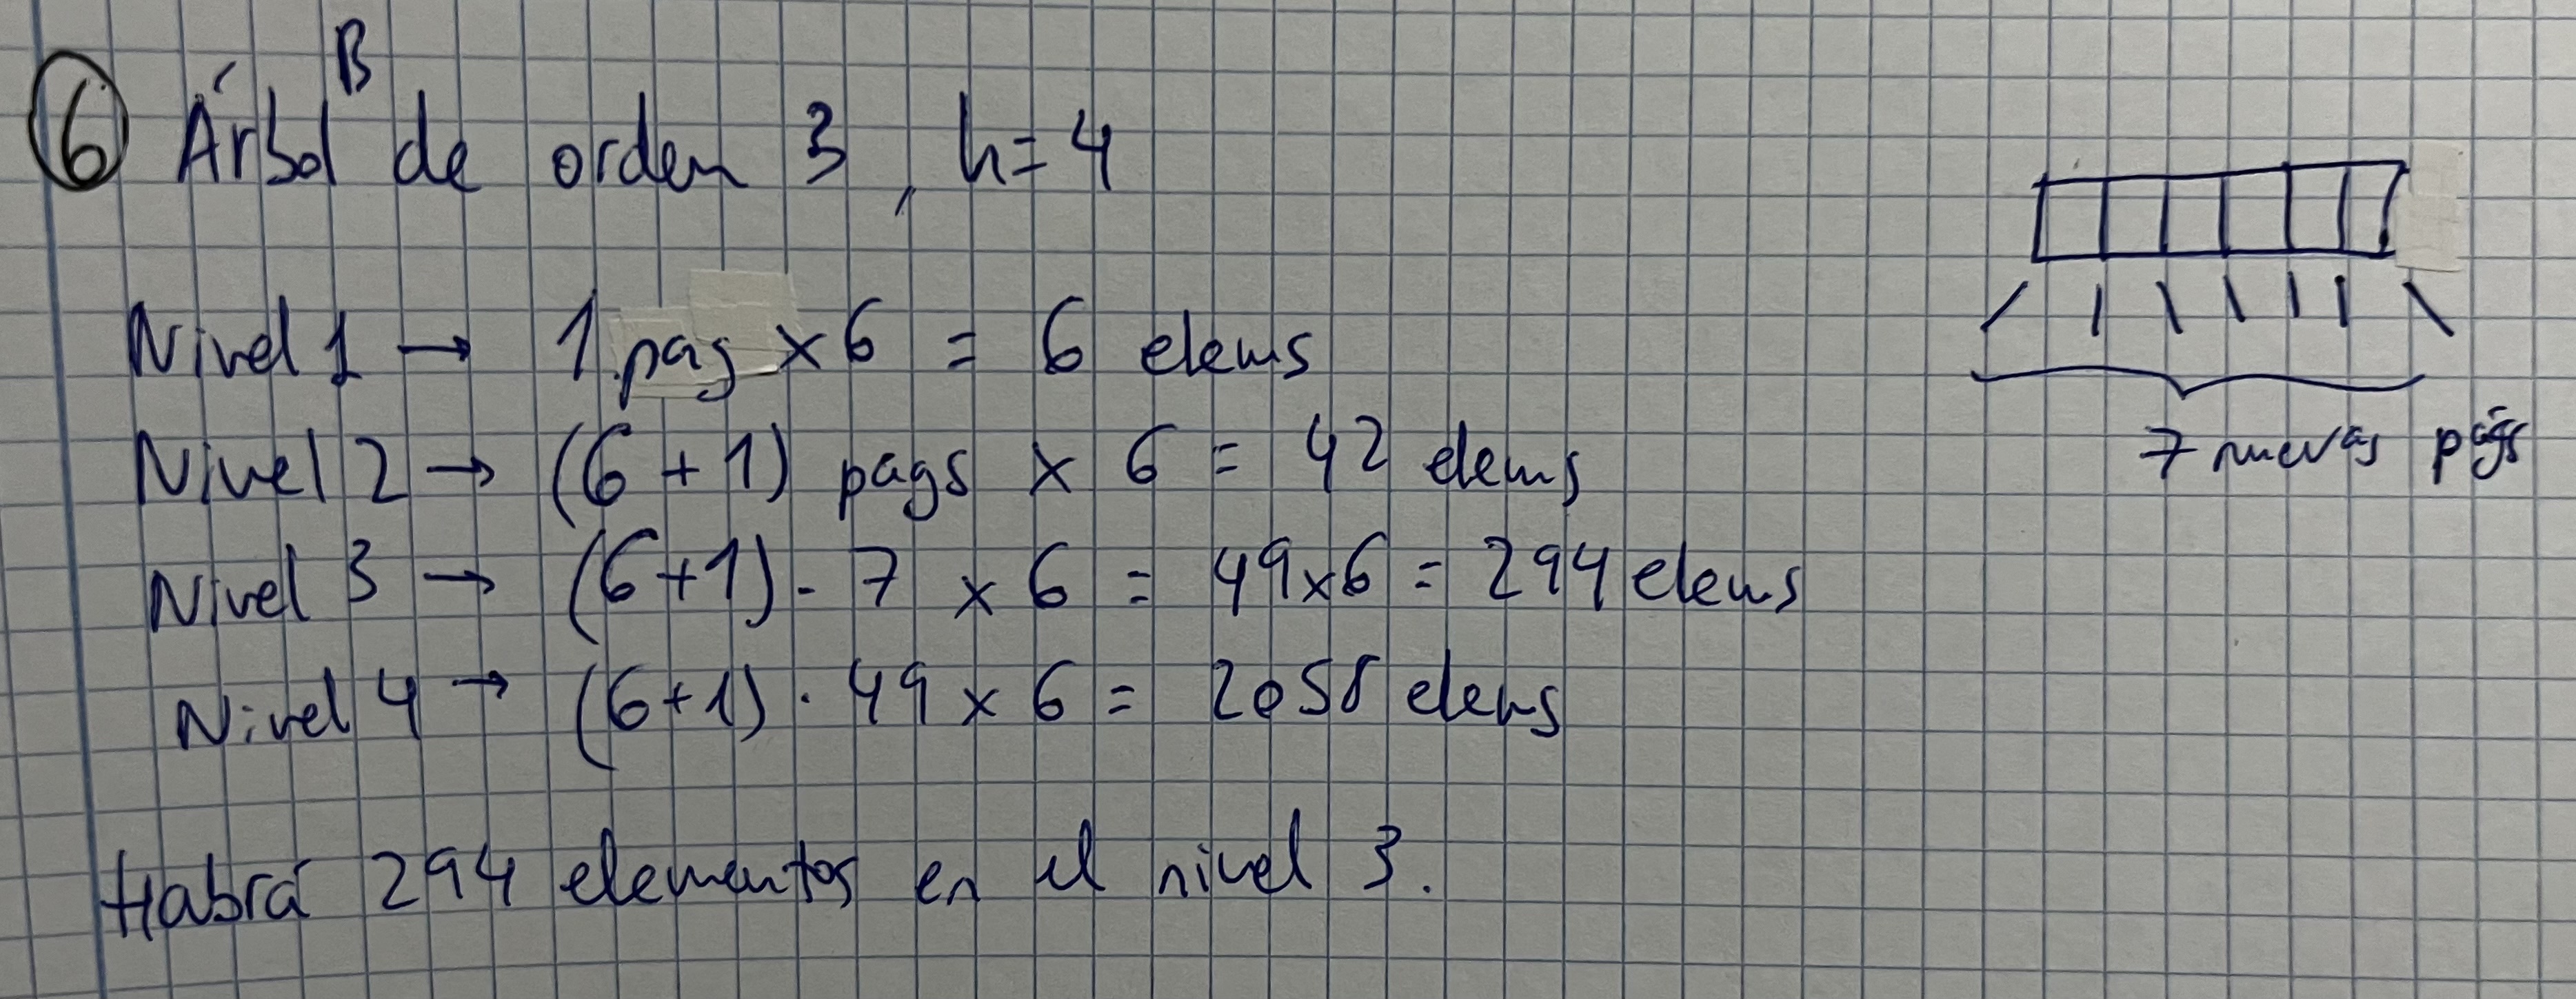 ⑥ Árbol B de orden 3, h=4
Nivel 1 → 1 pag × 6 = 6 elems
Nivel 2 → (6+1) pags × 6 = 42 elems
Nivel 3 → (6+1) · 7 × 6 = 49×6 = 294 elems
Nivel 4 → (6+1) · 49 × 6 = 2058 elems
7 nuevas págs
Habrá 294 elementos en el nivel 3.